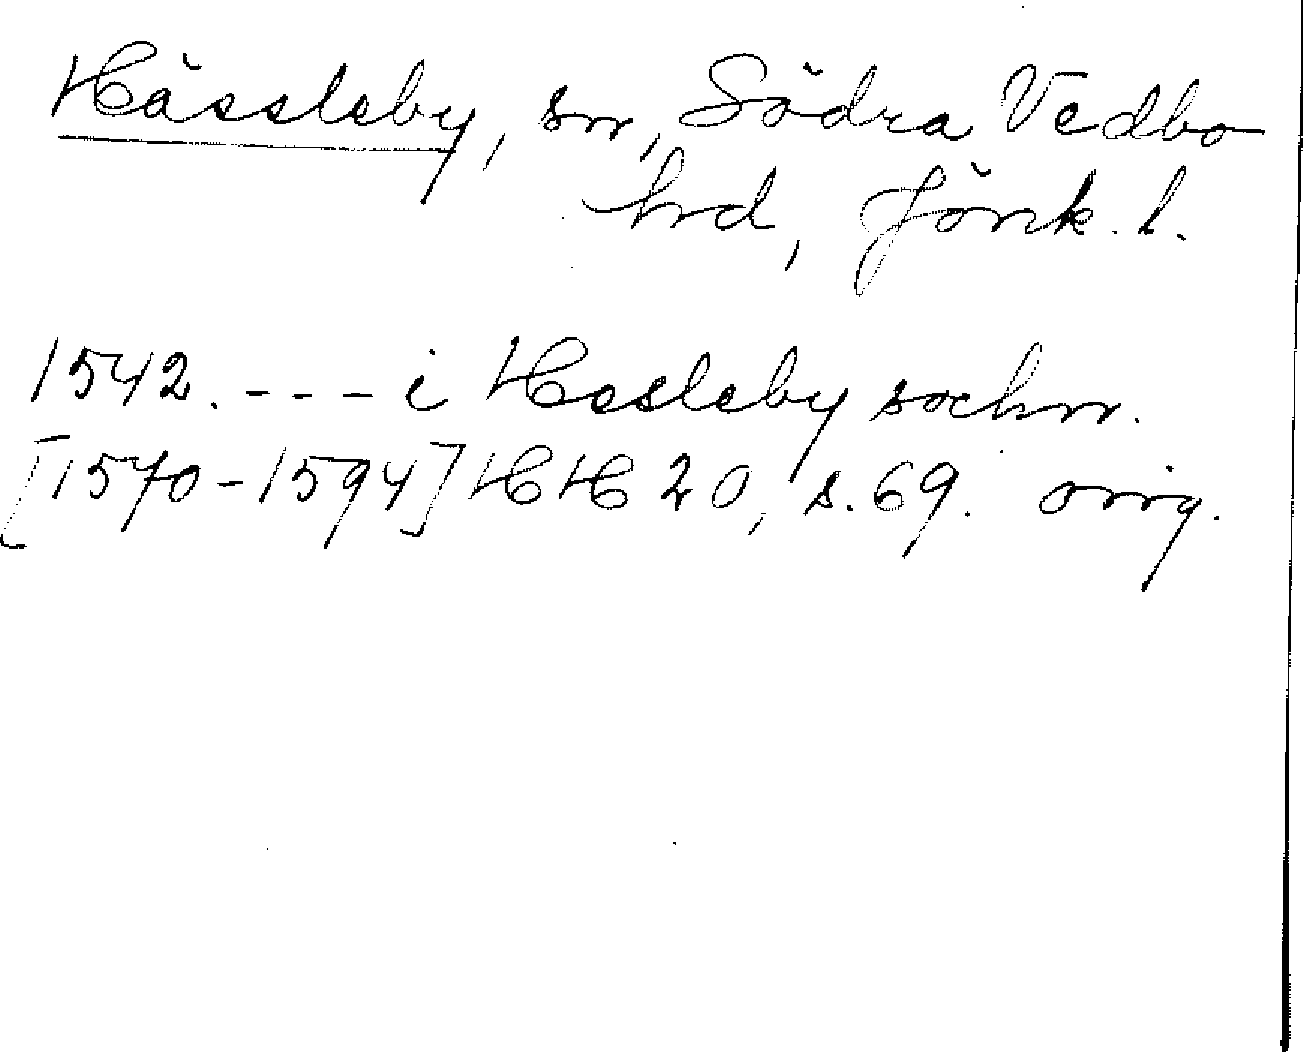 Hässleby, sn, Södra Vedbo
hrd, Jönk. l.
1542. --- i Hesleby sochnn.
[1570-1594] HH 20, s. 69. orig.